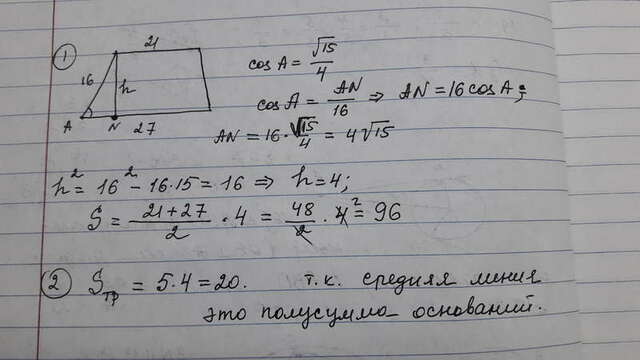 1
21
16
h
A
N
27
cos A = √15/4
cos A = AN/16 ⇒ AN = 16 cos A;
AN = 16 · √15/4 = 4√15
h² = 16² - 16·15 = 16 ⇒ h = 4;
S = (21+27)/2 · 4 = 48/2 · 4² = 96
2 Sтр = 5·4 = 20. т.к. средняя линия
это полусумма оснований.